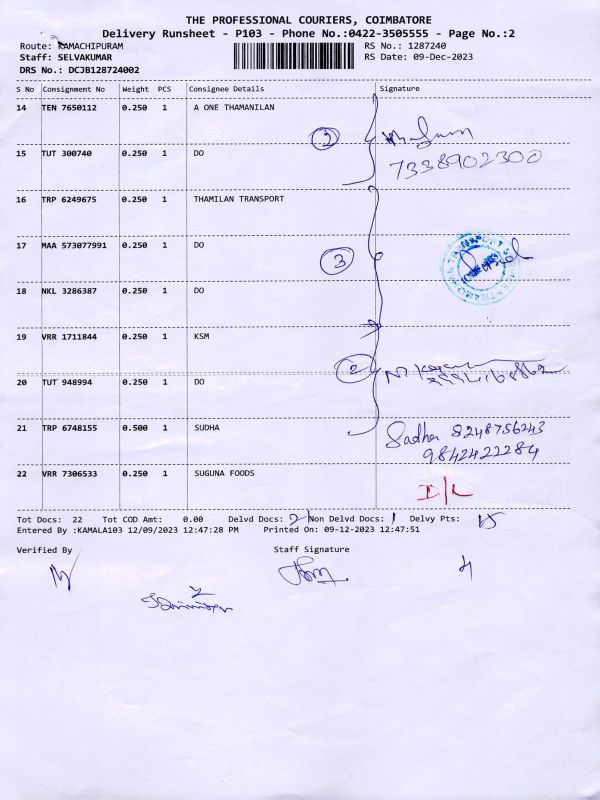 THE PROFESSIONAL COURIERS, COIMBATORE
Delivery Runsheet - P103 - Phone No.:0422-3505555 - Page No.:2
Route: KAMACHIPURAM RS No.: 1287240
Staff: SELVAKUMAR RS Date: 09-Dec-2023
DRS No.: DCJB128724002
S No Consignment No Weight PCS Consignee Details Signature
14 TEN 7650112 0.250 1 A ONE THAMANILAN
2
7338902300
15 TUT 300740 0.250 1 DO
16 TRP 6249675 0.250 1 THAMILAN TRANSPORT
17 MAA 573077991 0.250 1 DO
3
18 NKL 3286387 0.250 1 DO
19 VRR 1711844 0.250 1 KSM
2
20 TUT 948994 0.250 1 DO
21 TRP 6748155 0.500 1 SUDHA Sadha 8248756243
9842422284
22 VRR 7306533 0.250 1 SUGUNA FOODS
Tot Docs: 22 Tot COD Amt: 0.00 Delvd Docs: 21 Non Delvd Docs: 1 Delvy Pts: 15
Entered By :KAMALA103 12/09/2023 12:47:28 PM Printed On: 09-12-2023 12:47:51
Verified By Staff Signature